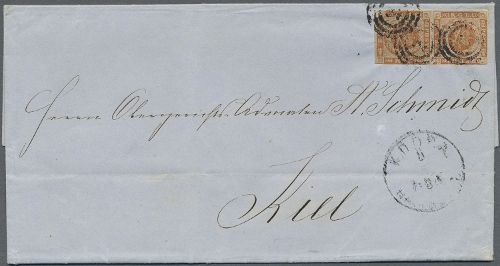 Herrn Obergerichts-Advocaten A. Schmidt
Kiel